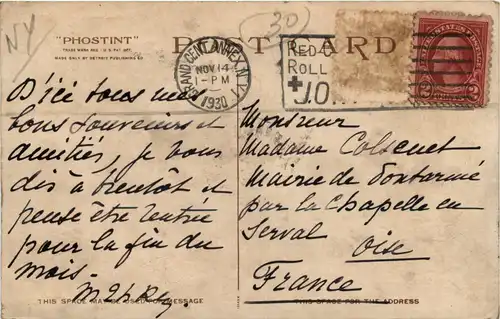 NY
"PHOSTINT"
TRADE MARK REG. U.S. PAT. OFF.
MADE ONLY BY DETROIT PUBLISHING CO.
30
POST CARD
GRAND CENT. ANNEX, N.Y.
NOV 14
1-PM
1930
RED C
ROLL
JO
UNITED STATES POSTAGE
2 2
D'ici tous mes
bons souvenirs et
amitiés, je vous
dis à bientôt et
pense être rentré
pour la fin du
mois.
Monsieur
Madame Colsenet
Mairie de
par la Chapelle en
Serval
Oise
France
THIS SPACE MAY BE USED FOR MESSAGE
THIS SPACE FOR THE ADDRESS